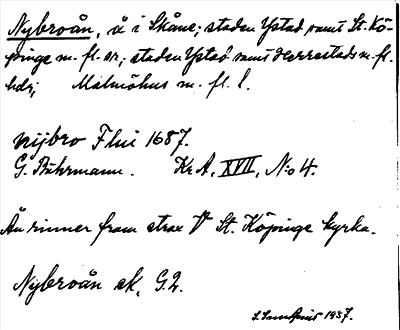 Nybroån, å i Skåne; staden Ystad samt St. Kö-
pinge m. fl. sr; staden Ystad samt Herrestads m. fl.
hdr; Malmöhus m. fl. l.
nijbro Flui 1687.
G. Buhrmann. Kr A, XVII, N:o 4.
Ån rinner fram strax V St. Köpinge kyrka.
Nybroån ek. G.2.
1937.